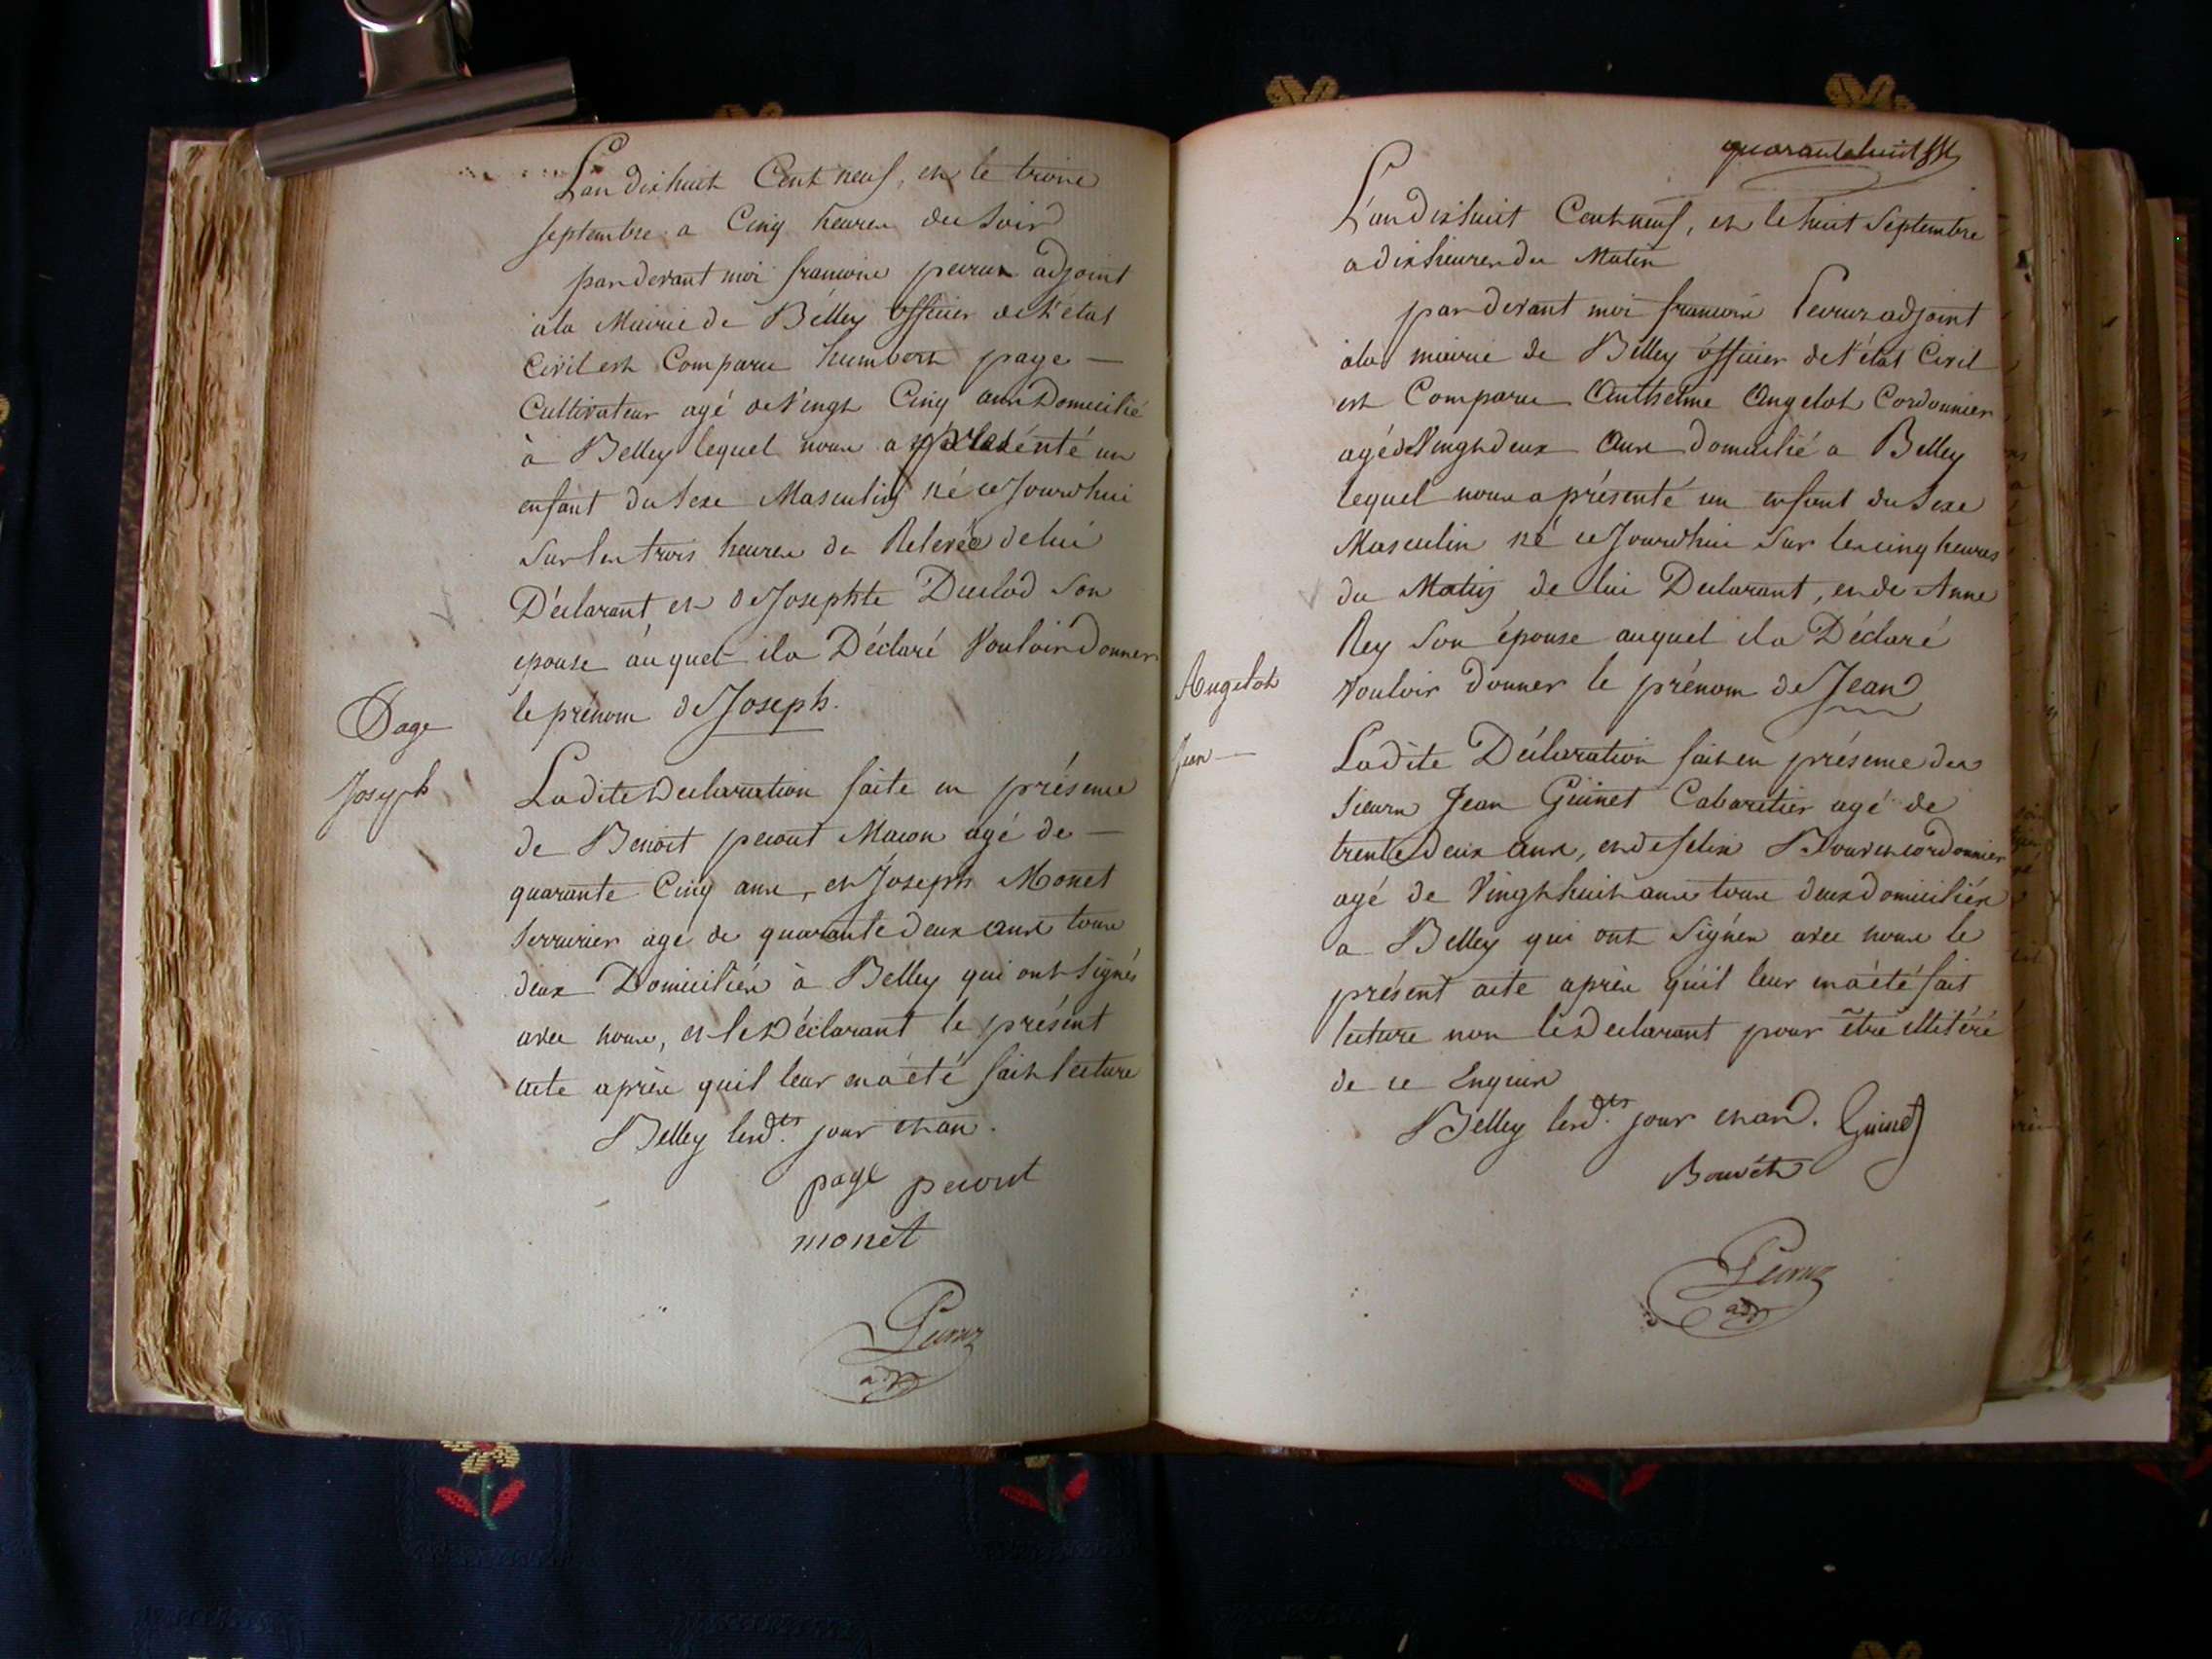 L'an dixhuit Cent neuf, et le trois
septembre a Cinq heures du Soir
pardevant moi francois peiruz adjoint
a la Mairie de Belley officier de l'état
Civil est Comparu humbert page —
Cultivateur agé de Vingt Cinq ans Domicilié
à Belley lequel nous a présenté un
enfant du Sexe Masculin né ce Jourd'hui
Sur les trois heures de Relevée de lui
Déclarant, et de Josephte Duclod Son
epouse auquel il a Déclaré Vouloir Donner
le prénom de Joseph.
Page
Joseph
La dite Declaration faite en présence
de Benoit pecout Macon agé de —
quarante Cinq ans, et Joseph Monet
Serrurier agé de quarante deux ans tous
deux Domiciliés à Belley qui ont Signés
avec nous, et le Déclarant le présent
acte après quil leur en a été fait lecture
Belley lesd.ts jour et an.
page pecout
monet
adj
quarante huit
L'an dixhuit Cent neuf, et le huit Septembre
a dix heures du Matin
pardevant moi francois Peiruz adjoint
a la mairie de Belley officier de l'état Civil
est Comparu Anthelme Angelot Cordonnier
agé de Vingt deux ans domicilié a Belley
lequel nous a présenté un enfant du Sexe
Masculin né ce Jourd'hui Sur les cinq heures
du Matin de lui Declarant, et de Anne
Rey Son épouse auquel il a Déclaré
Vouloir donner le prénom de Jean
Angelot
Jean —
La dite Déclaration fait en présence des
Sieurs Jean Guinet Cabaretier agé de
trente deux ans, et de felix Bouvet cordonnier
agé de Vingt huit ans tous deux domiciliés
a Belley qui ont Signés avec nous le
présent acte après qu'il leur en a été fait
lecture non le Declarant pour être illitéré
de ce Enquis
Belley lesd.ts jour et an. Guinet
Bouvet
adj